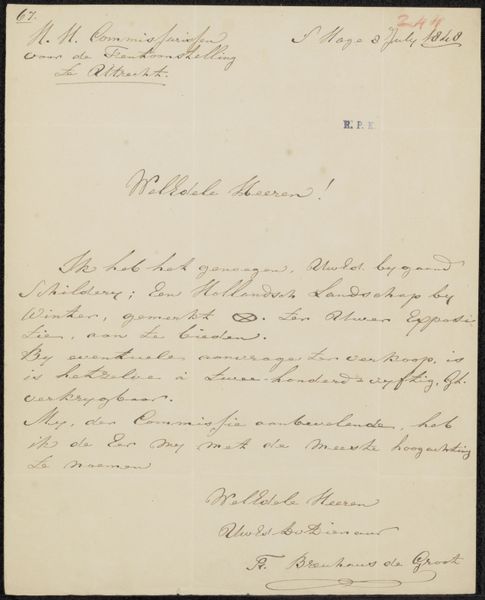 67.
244
H. H. Commissarissen
voor de Tentoonstelling
te Uttrecht.
S' Hage 3 July 1848
R. P. K.
WelEdele Heeren!
Ik heb het genoegen, UwEd bygaand
Schildery; Een Hollandsch Landschap by
Winter, gemerkt ter Uwer Exposi
tie, aan te bieden.
By eventuele aanvrage ter verkoop, is
is hetzelve à twee-honderd & vyftig, Gl.
verkrygbaar.
My, der Commissie aanbevelende, heb
ik de Eer my met de meeste hoogachting
te noemen
WelEdele Heeren
UwEd Dienaar
Fr. Breuhaus de Groot